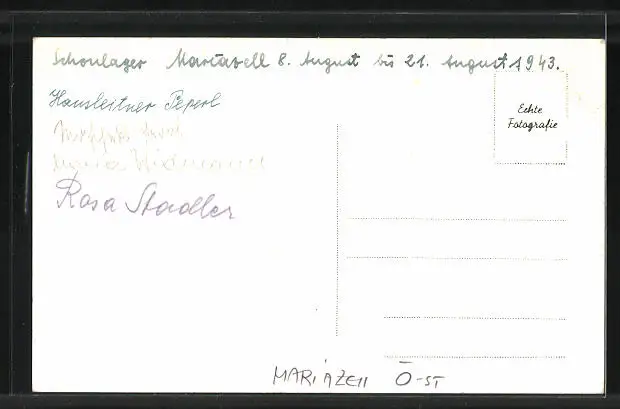 Schonlager Mariazell 8. August bis 21. August 1943.
Hausleitner Peperl
Echte
Fotografie
Widmann
Rosa Stadler
MARIAZEll Ö-ST